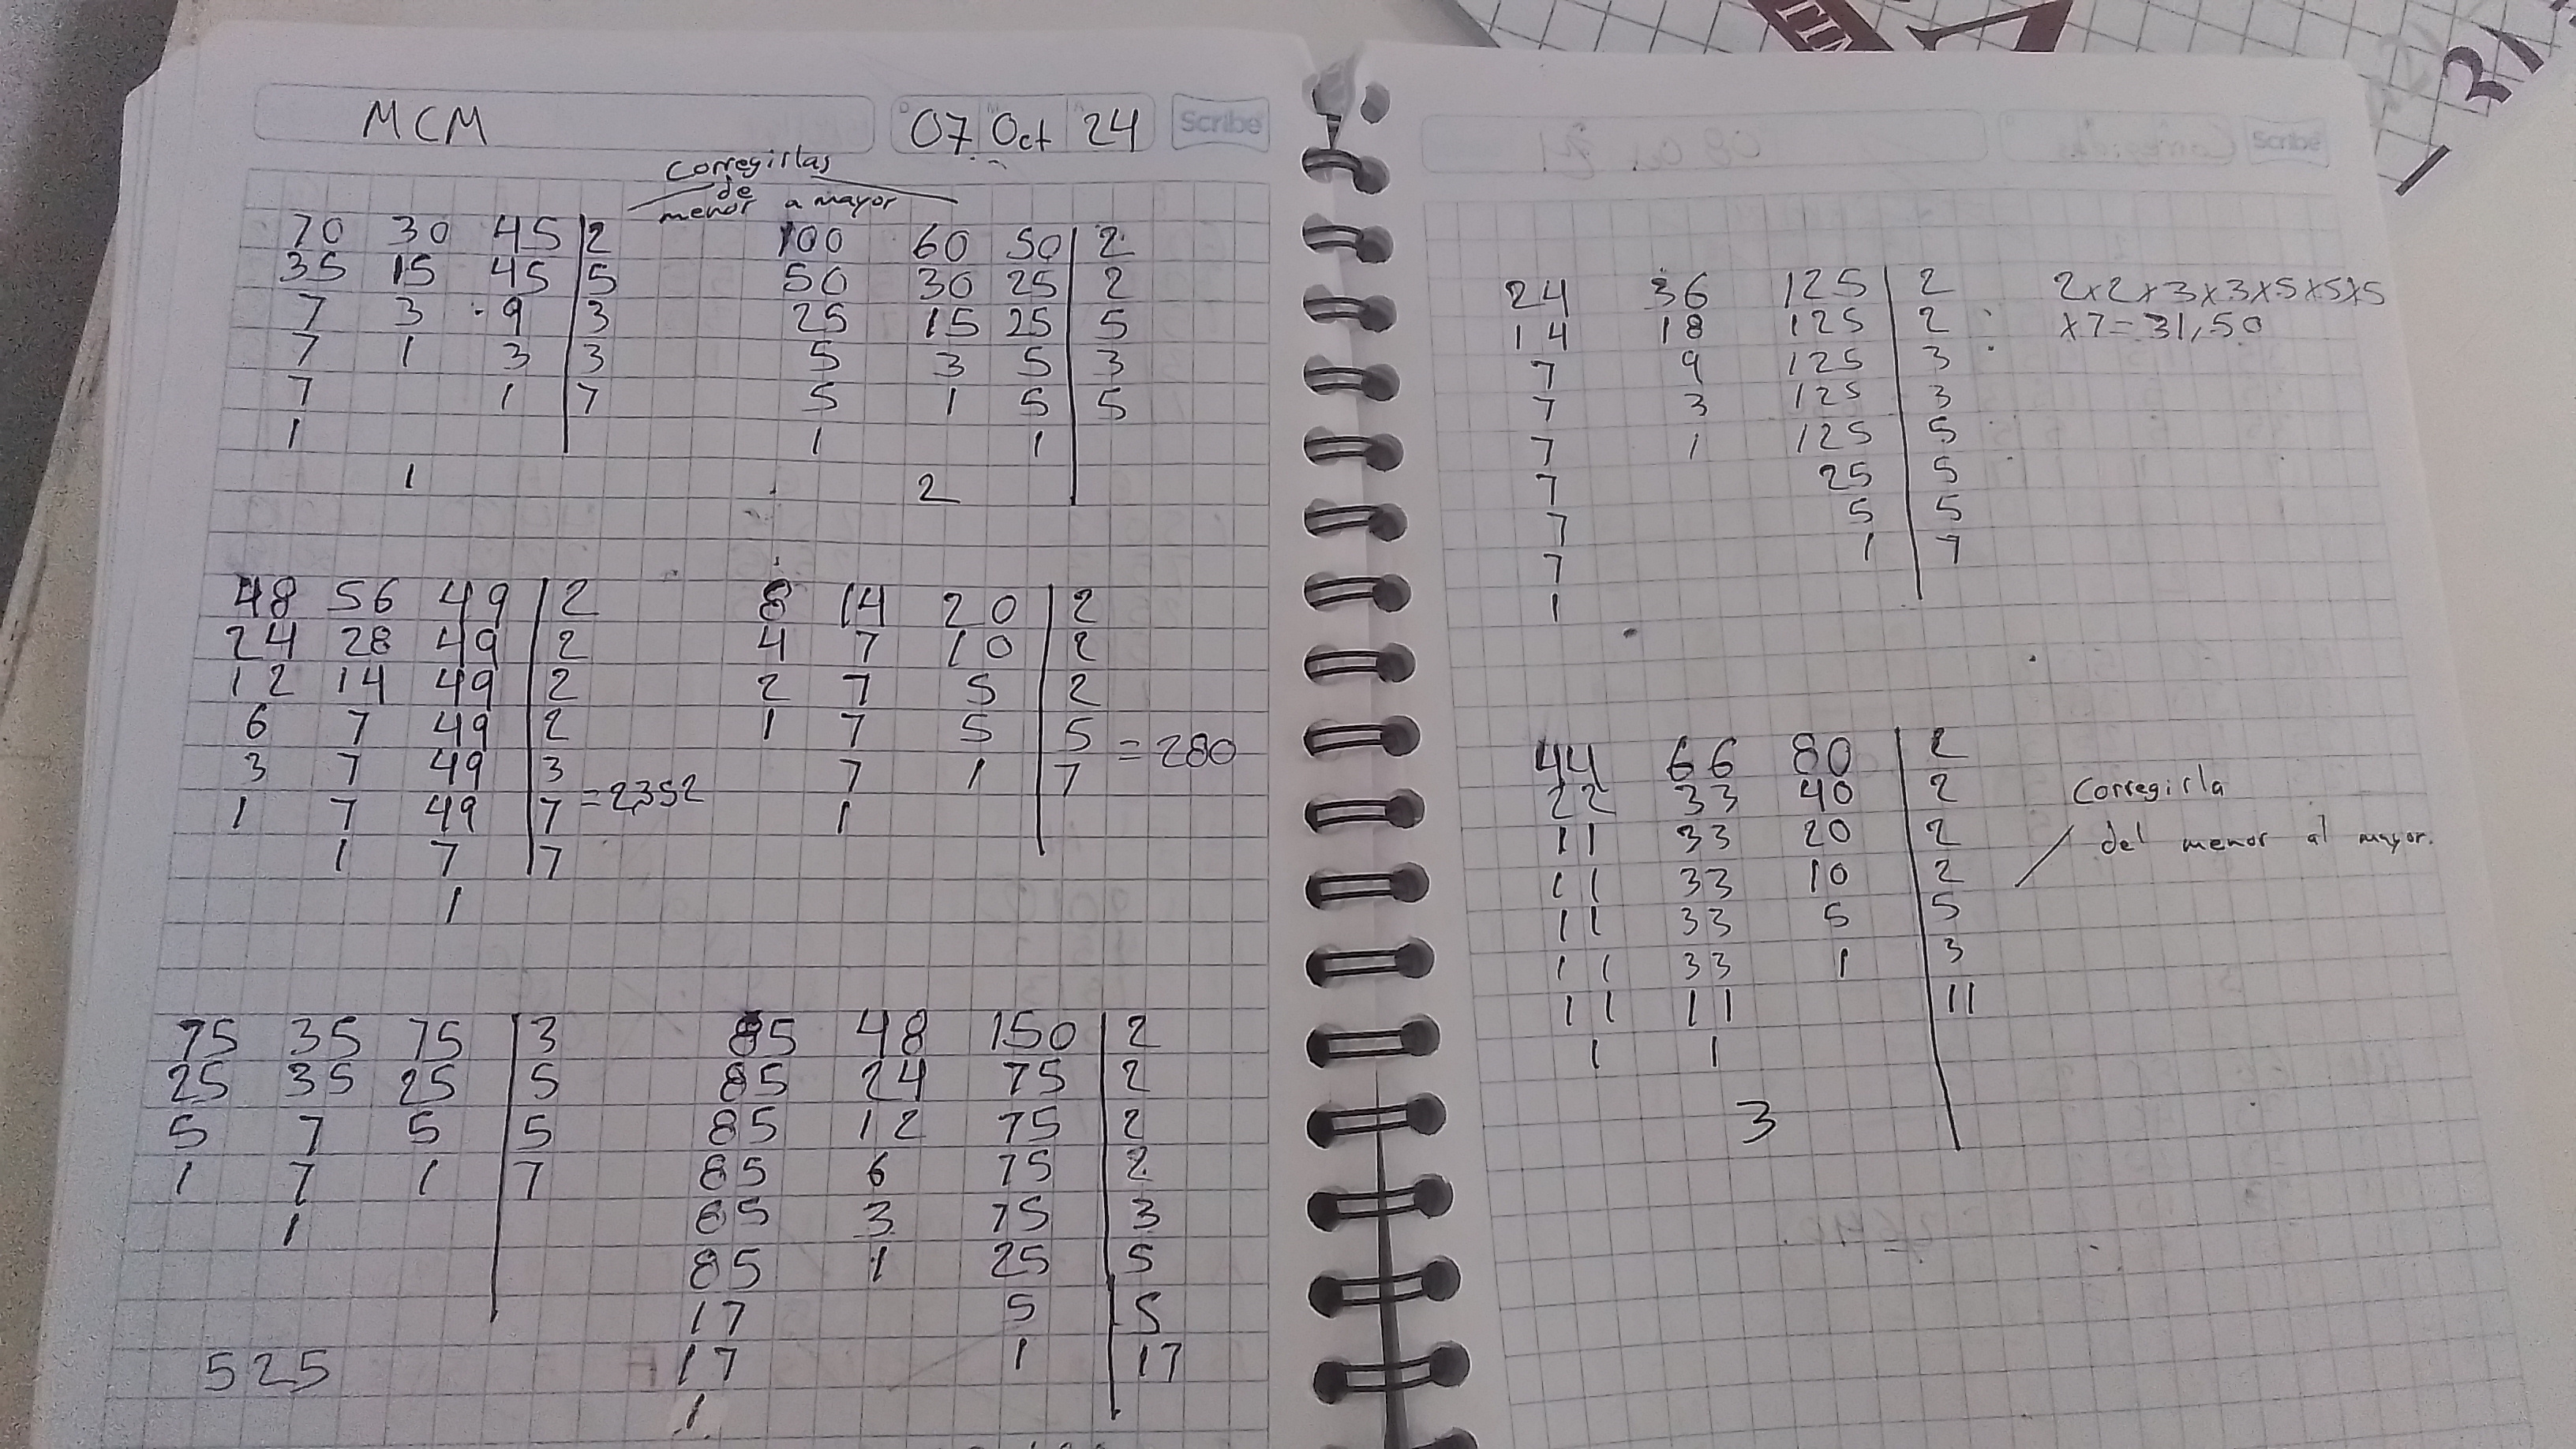 MCM
07 Oct 24
Scribe
Corregirlas
de
menor a mayor
70 30 45 2
35 15 45 5
7 3 9 3
7 1 3 3
7 1 7
1
1
100 60 50 2
50 30 25 2
25 15 25 5
5 3 5 3
5 1 5 5
1 1
2
48 56 49 2
24 28 49 2
12 14 49 2
6 7 49 2
3 7 49 3
1 7 49 7 = 2352
1 7 7
1
8 14 20 2
4 7 10 2
2 7 5 2
1 7 5 5 = 280
7 1 7
1
75 35 75 3
25 35 25 5
5 7 5 5
1 7 1 7
1
525
85 48 150 2
85 24 75 2
85 12 75 2
85 6 75 2
85 3 75 3
85 1 25 5
17 5 5
17 1 17
1
Scribe
24 36 125 2
14 18 125 2
7 9 125 3
7 3 125 3
7 1 125 5
7 25 5
7 5 5
7 1 7
1
2x2x3x3x5x5x5
x7=31,50
44 66 80 2
22 33 40 2
11 33 20 2
11 33 10 2
11 33 5 5
11 33 1 3
11 11 11
1 1
3
Corregirla
del menor al mayor.